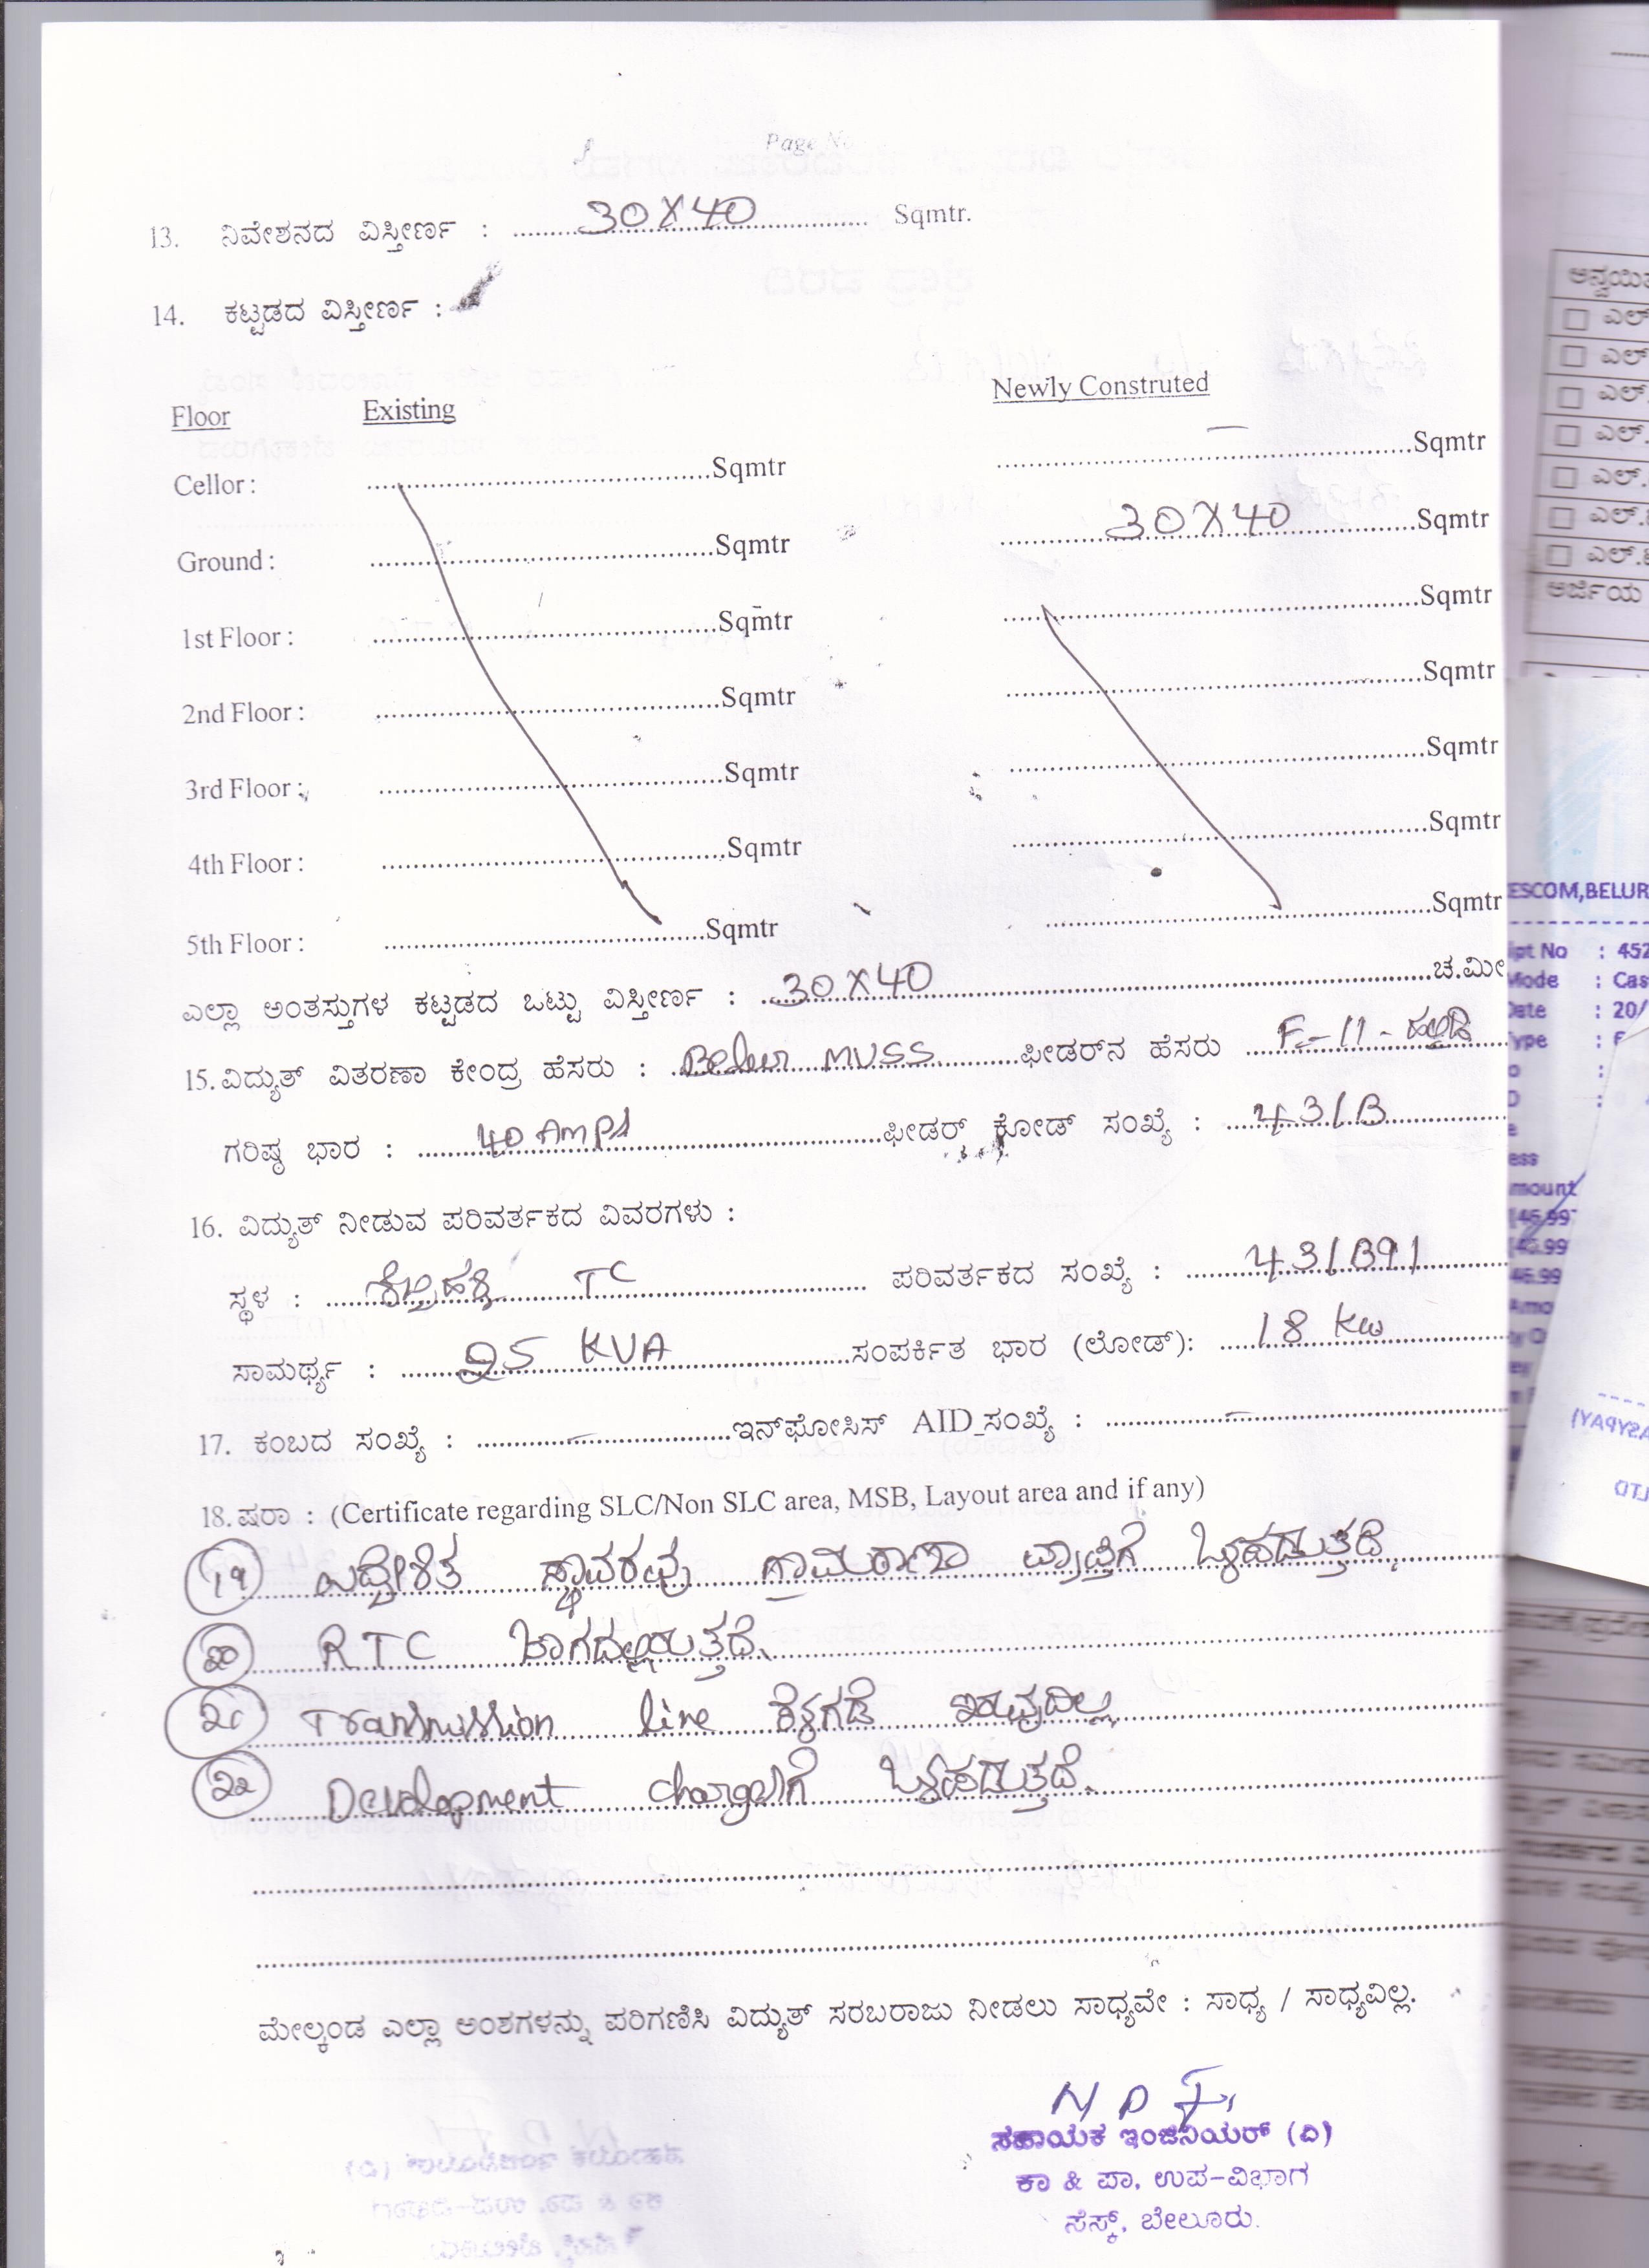 Page No
13. ನಿವೇಶನದ ವಿಸ್ತೀರ್ಣ : 30X40 Sqmtr.
14. ಕಟ್ಟಡದ ವಿಸ್ತೀರ್ಣ :
Floor Existing Newly Construted
Cellor : Sqmtr Sqmtr
Ground : Sqmtr 30X40 Sqmtr
1st Floor : Sqmtr Sqmtr
2nd Floor : Sqmtr Sqmtr
3rd Floor : Sqmtr Sqmtr
4th Floor : Sqmtr Sqmtr
5th Floor : Sqmtr Sqmtr
ಎಲ್ಲಾ ಅಂತಸ್ತುಗಳ ಕಟ್ಟಡದ ಒಟ್ಟು ವಿಸ್ತೀರ್ಣ : 30X40 ಚ.ಮೀ
15. ವಿದ್ಯುತ್ ವಿತರಣಾ ಕೇಂದ್ರ ಹೆಸರು : Belur MUSS ಫೀಡರ್‌ನ ಹೆಸರು F-11-
ಗರಿಷ್ಠ ಭಾರ : 40 Amps ಫೀಡರ್ ಕೋಡ್ ಸಂಖ್ಯೆ : 431B
16. ವಿದ್ಯುತ್ ನೀಡುವ ಪರಿವರ್ತಕದ ವಿವರಗಳು :
ಸ್ಥಳ : TC ಪರಿವರ್ತಕದ ಸಂಖ್ಯೆ : 431B91
ಸಾಮರ್ಥ್ಯ : 25 KVA ಸಂಪರ್ಕಿತ ಭಾರ (ಲೋಡ್): 18 Kw
17. ಕಂಬದ ಸಂಖ್ಯೆ : ಇನ್‌ಫೋಸಿಸ್ AID ಸಂಖ್ಯೆ :
18. ಷರಾ : (Certificate regarding SLC/Non SLC area, MSB, Layout area and if any)
19 ಉದ್ದೇಶಿತ ಸ್ಥಾವರವು ಗ್ರಾಮಠಾಣಾ ವ್ಯಾಪ್ತಿಗೆ ಒಳಪಡುತ್ತದೆ.
20 RTC ಜಾಗದಲ್ಲಿರುತ್ತದೆ.
21 Transmission line ಕೆಳಗಡೆ ಇರುವುದಿಲ್ಲ
22 Development chargeಗೆ ಒಳಪಡುತ್ತದೆ.
ಮೇಲ್ಕಂಡ ಎಲ್ಲಾ ಅಂಶಗಳನ್ನು ಪರಿಗಣಿಸಿ ವಿದ್ಯುತ್ ಸರಬರಾಜು ನೀಡಲು ಸಾಧ್ಯವೇ : ಸಾಧ್ಯ / ಸಾಧ್ಯವಿಲ್ಲ.
ಸಹಾಯಕ ಇಂಜಿನಿಯರ್ (ವಿ)
ಕಾ & ಪಾ, ಉಪ-ವಿಭಾಗ
ಸೆಸ್ಕ್, ಬೇಲೂರು.
ESCOM,BELUR
ipt No : 452
Mode : Cas
Date : 20/
Type :
mount
46.99